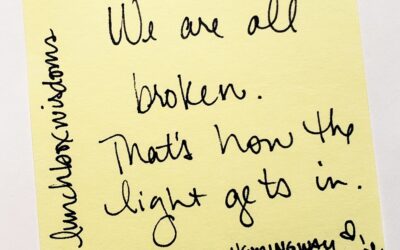 We are all
broken.
That's how the
light gets in.
HEMINGWAY
lunchboxwisdoms